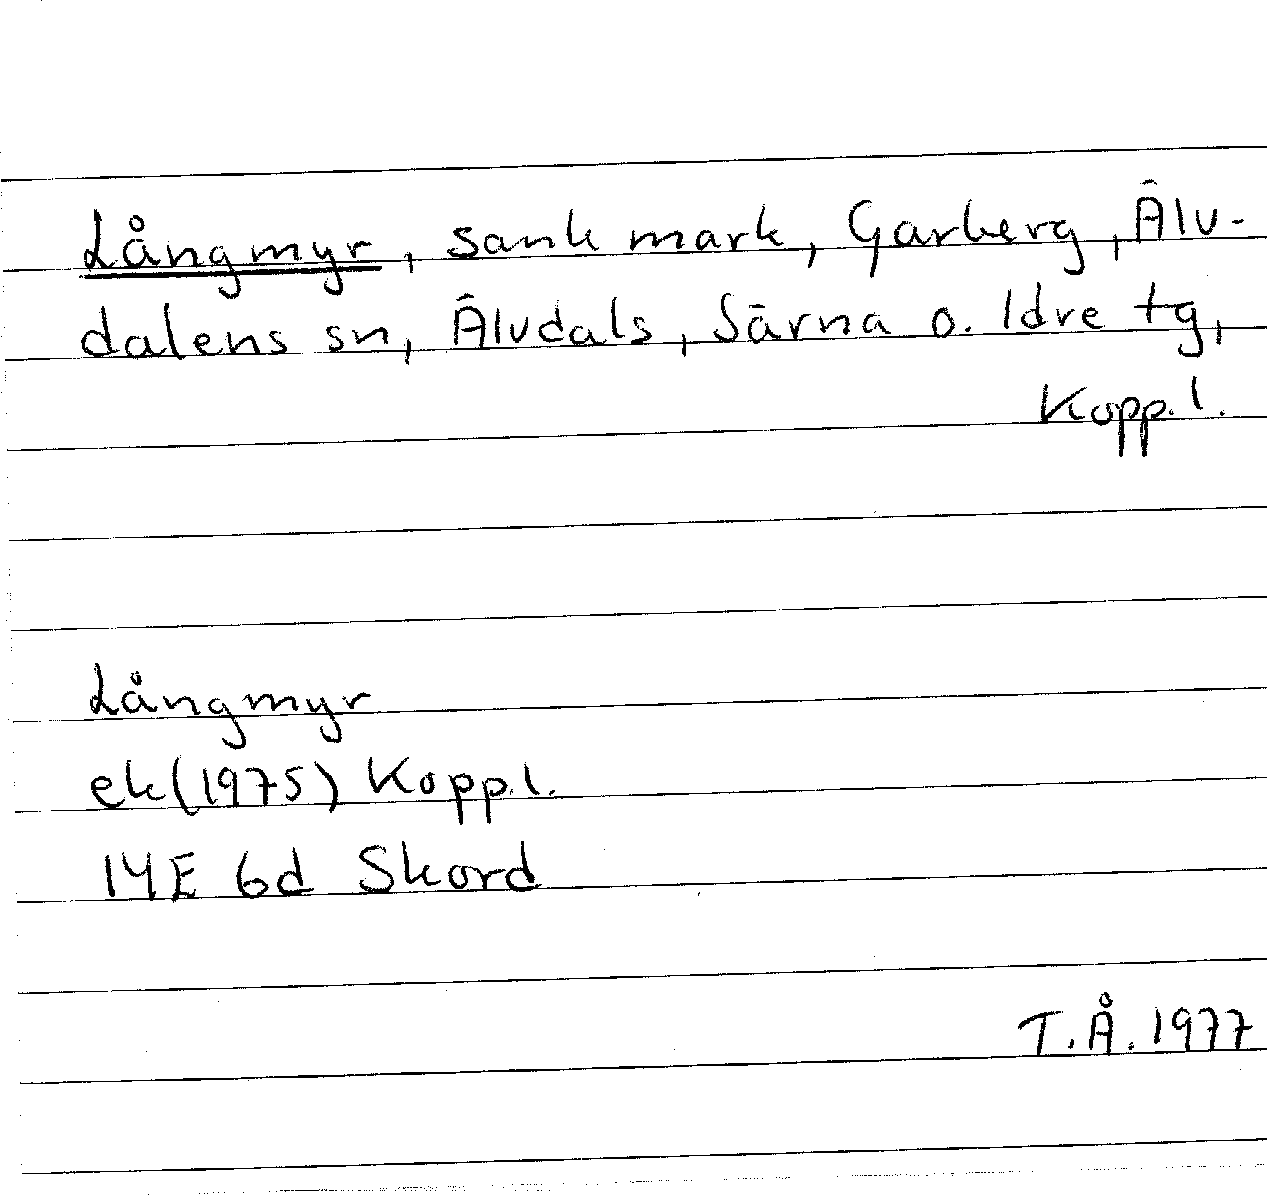 Långmyr, sank mark, Garberg, Älv-
dalens sn, Älvdals, Särna o. Idre tg,
Kopp.l.
Långmyr
ek(1975) Kopp.l.
14E 6d Skord
T.Å. 1977